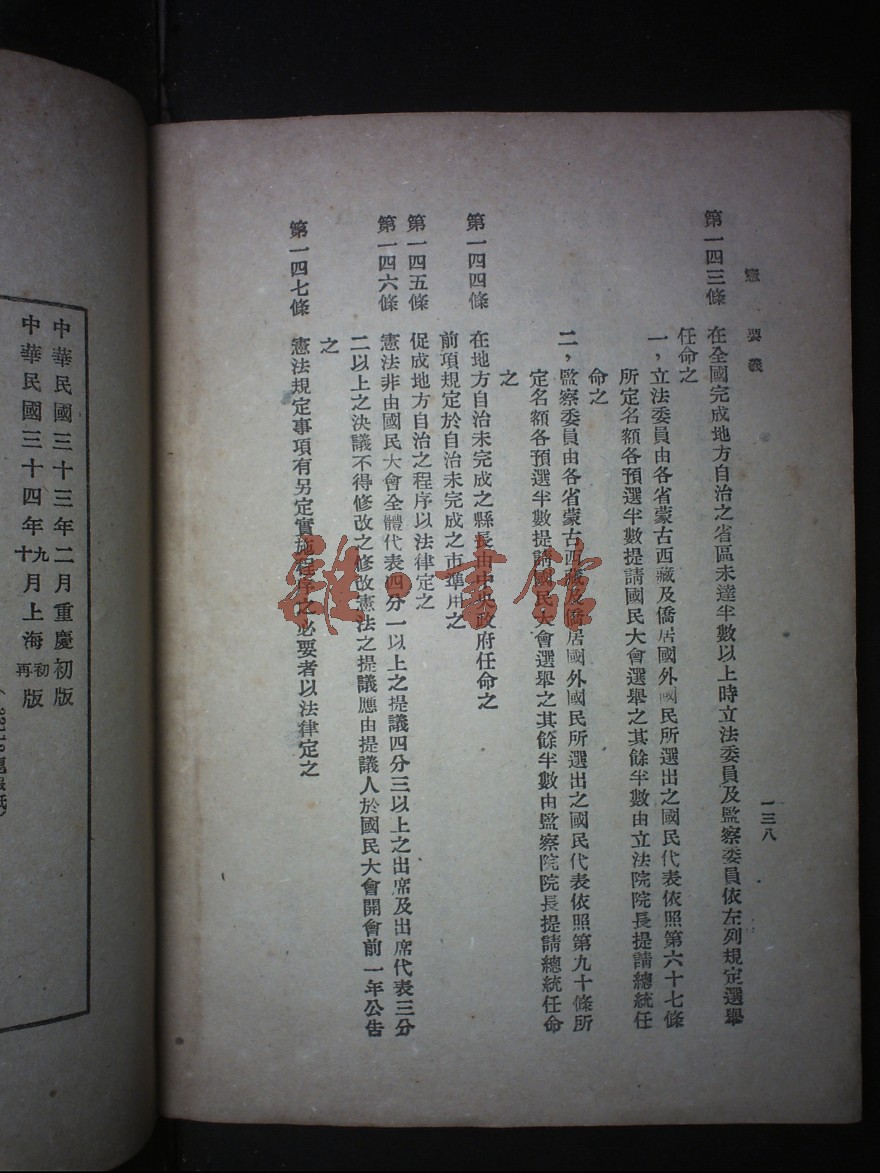 憲　要義
一三八
第一四三條　在全國完成地方自治之省區未達半數以上時立法委員及監察委員依左列規定選舉
任命之
一，立法委員由各省蒙古西藏及僑居國外國民所選出之國民代表依照第六十七條
所定名額各預選半數提請國民大會選舉之其餘半數由立法院院長提請總統任
命之
二，監察委員由各省蒙古西藏及僑居國外國民所選出之國民代表依照第九十條所
定名額各預選半數提請國民大會選舉之其餘半數由監察院院長提請總統任命
之
第一四四條　在地方自治未完成之縣長由中央政府任命之
前項規定於自治未完成之市準用之
第一四五條　促成地方自治之程序以法律定之
第一四六條　憲法非由國民大會全體代表四分一以上之提議四分三以上之出席及出席代表三分
二以上之決議不得修改之修改憲法之提議應由提議人於國民大會開會前一年公告
之
第一四七條　憲法規定事項有另定實施程序之必要者以法律定之
中華民國三十三年二月重慶初版
中華民國三十四年九月上海初版
十　再
雜書館